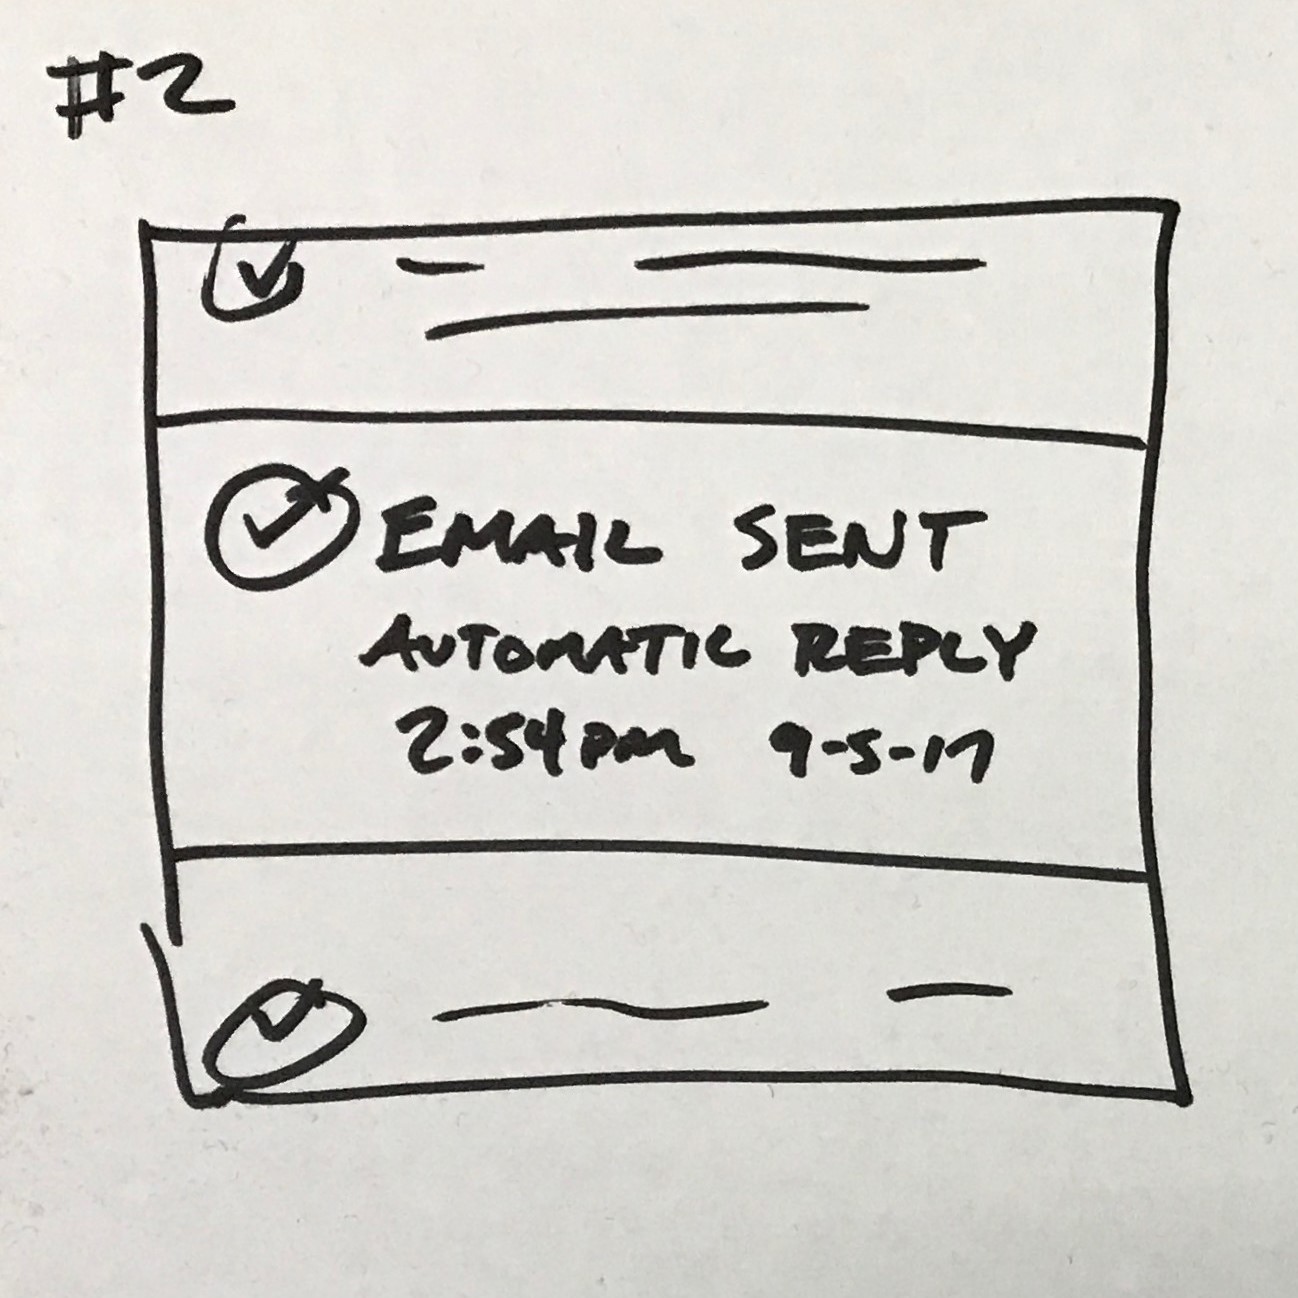 #2
EMAIL SENT
AUTOMATIC REPLY
2:54pm 9-5-17